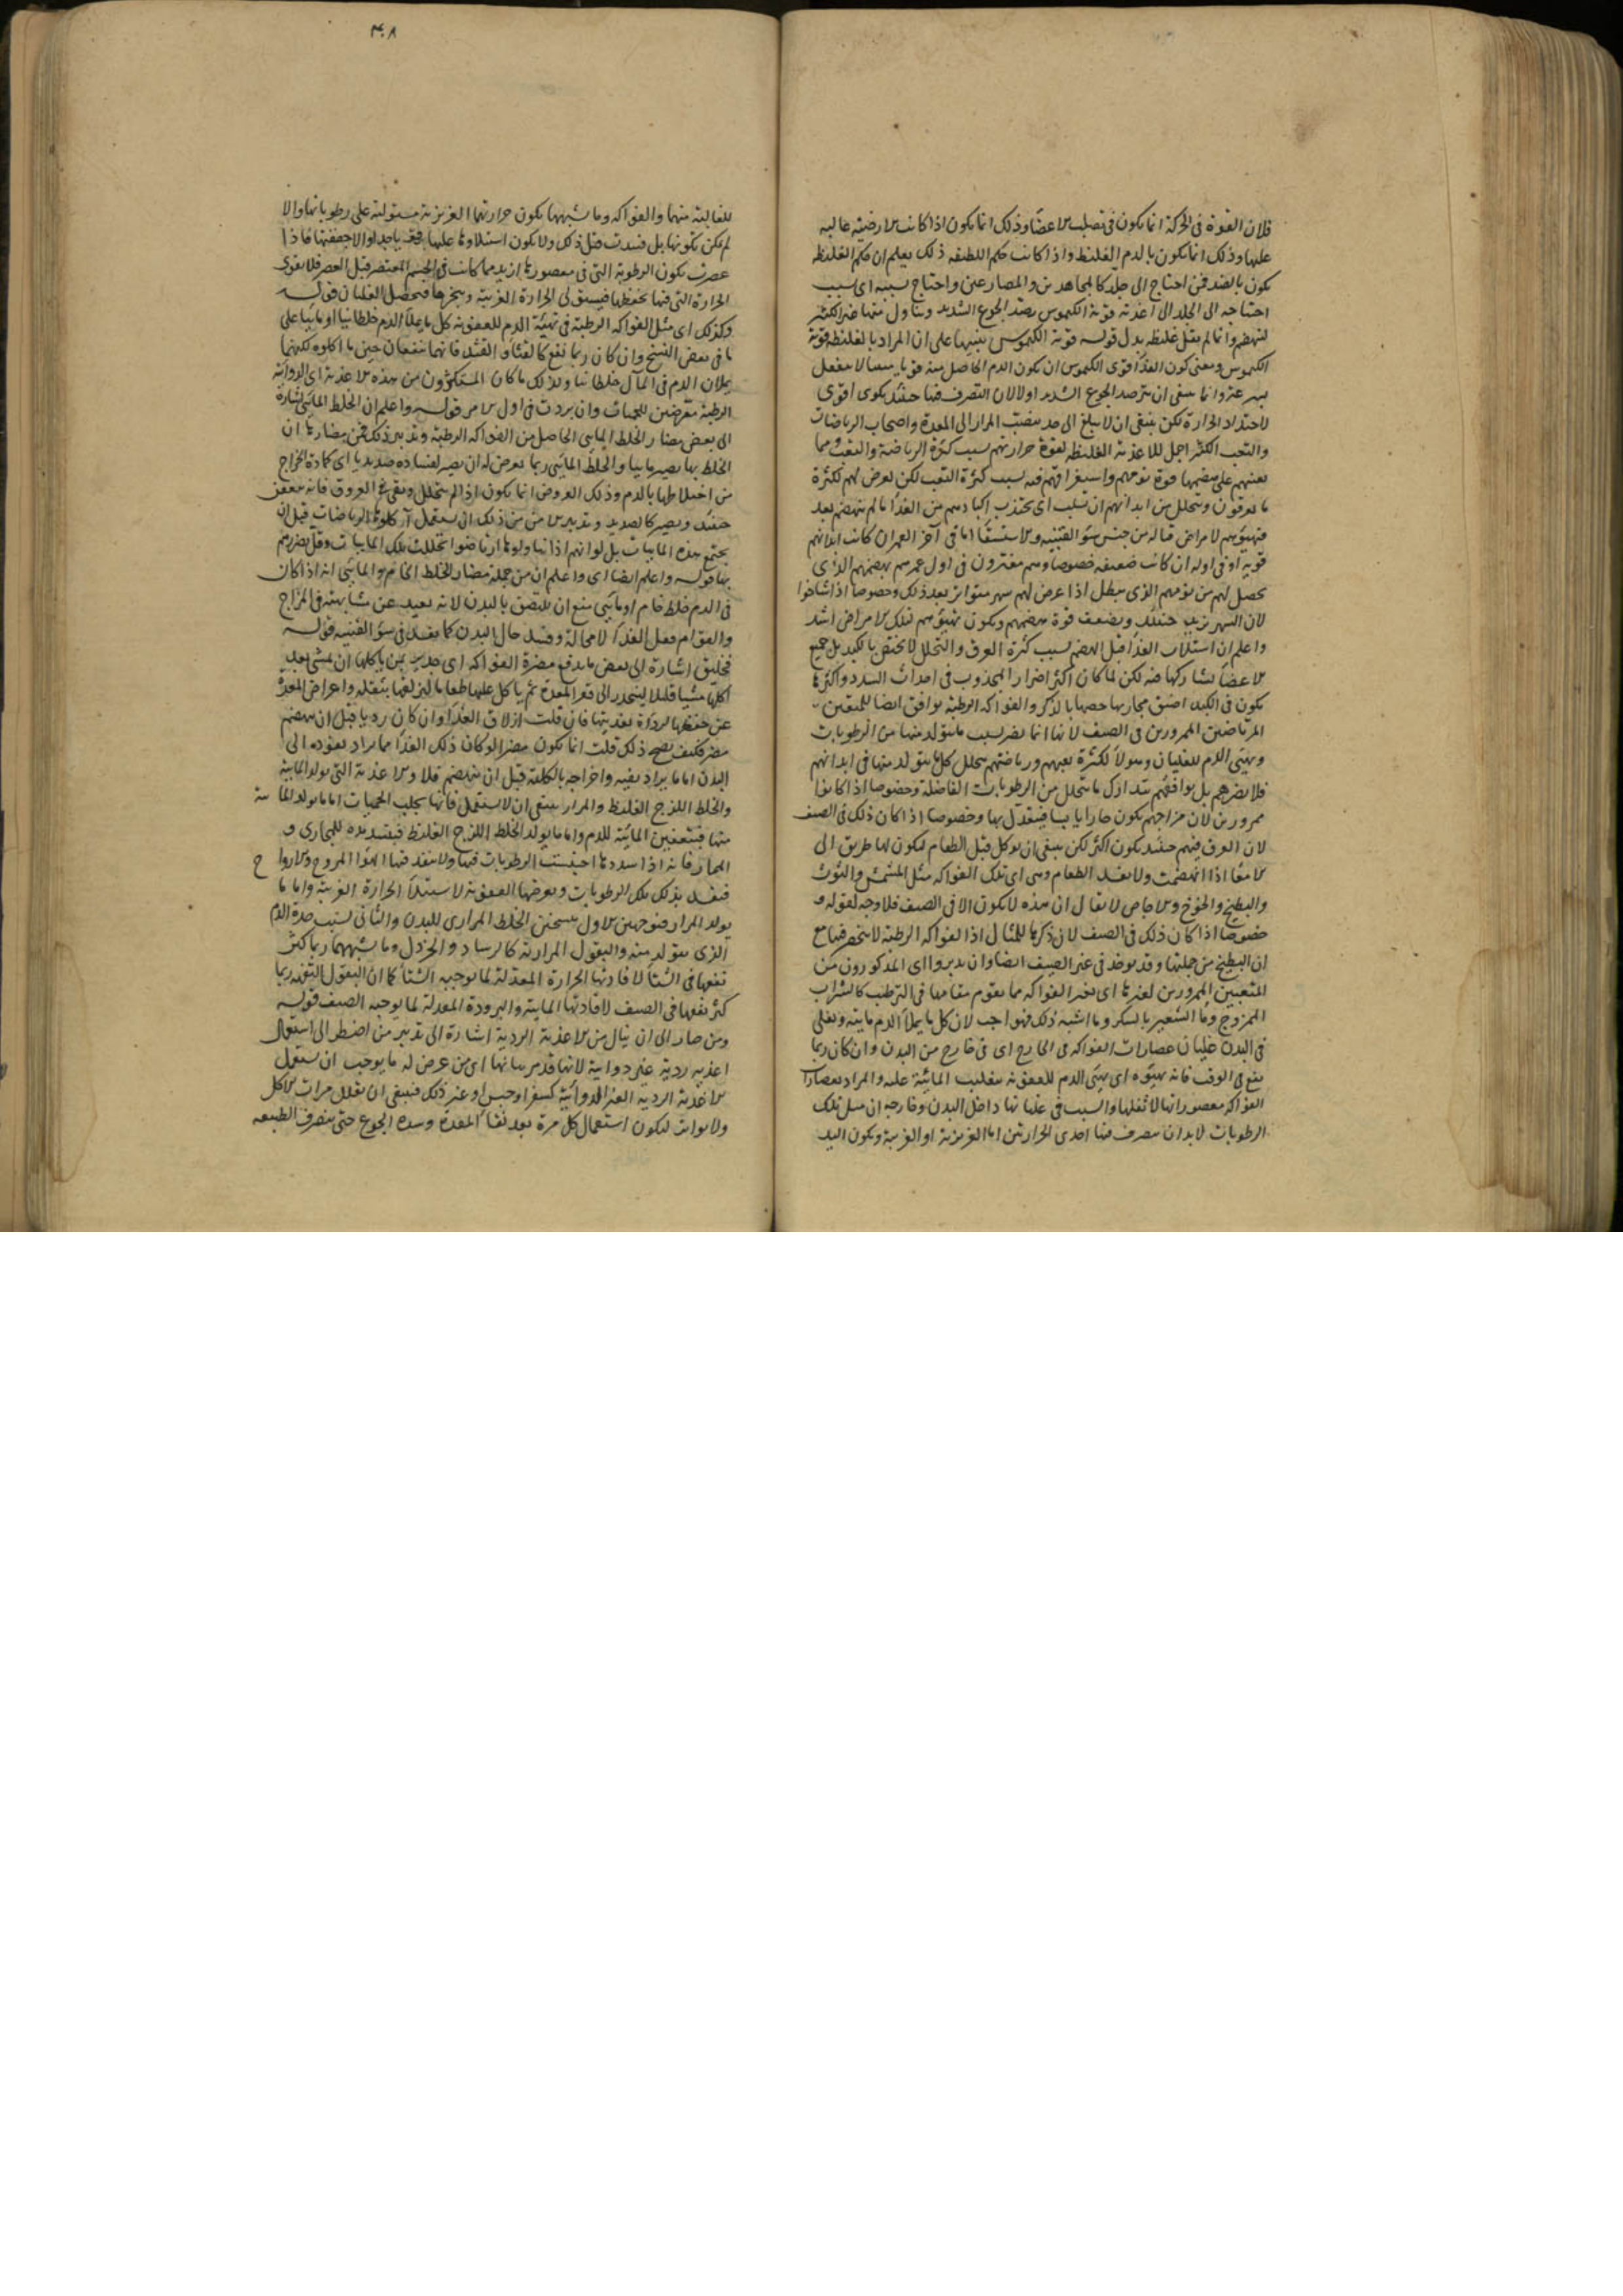 فلان القوة فى الحركة انما يكون فى تصليب الاعضا وذلك انما يكون اذا كانت الارضية غالبة
عليها وذلك انما يكون بالدم الغليظ واذا كانت حكم اللطيفه ذلك يعلم ان حكم الغليظه
يكون بالضد فمن احتاج الى جلد كالمجاهدين والمصارعين واحتاج بسببه اى بسبب
احتياجه الى الجلد الى اغذية قوية الكيموس رصد الجوع الشديد وتناول منها غير الكثير
لتنهضم وانما لم يقل غليظه بدل قوله قوية الكيموس تنبيها على ان المراد بالغليظه قوية
الكيموس ومعنى كون الغذا قوى الكيموس ان يكون الدم الحاصل منه قويا لا ينفعل
بسرعة وانما ينبغى ان يترصد الجوع الشديد اولا لان التصرف فيها حينئذ يكون اقوى
لاحتداد الحرارة لكن ينبغى ان لا يبلغ الى حد ينصب المرار الى المعدة واصحاب الرياضات
والتعب الكثير احمل للاغذية الغليظه لقوة حرارتهم بسبب كثرة الرياضة والتعب ومما
يعينهم على هضمها قوة نومهم واستغراقهم فيه بسبب كثرة التعب لكن يعرض لهم لكثرة
ما يعرقون ويتحلل من ابدانهم ان تسلب اى تجتذب اكبادهم من الغذا ما لم ينهضم بعد
فيهيؤهم لامراض قتاله من جنس سؤ القنيه والاستسقا اما فى آخر العمر ان كانت ابدانهم
قوية او فى اوله ان كانت ضعيفه خصوصا وهم مغترون فى اول عمرهم بهضمهم الذى
يحصل لهم من نومهم الذى يبطل اذا عرض لهم سهر متواتر بعد ذلك وخصوصا اذا شاخوا
لان السهر يزيد حينئذ ويضعف قوة هضمهم ويكون تهيؤهم لتلك الامراض اشد
واعلم ان استلاب الغذا قبل الهضم بسبب كثرة العرق والتحلل لا يختص بالكبد بل جميع
الاعضا يشاركها فيه لكن لما كان اكثر اضرار المجذوب فى احداث السدد واكثرها
يكون فى الكبد لضيق مجاريها خصها بالذكر والفواكه الرطبة يوافق ايضا للمتعبين
المرتاضين الممرورين فى الصيف لانها انما يضر بسبب ما يتولد منها من الرطوبات
ويهيئ الدم للغليان وهولا لكثرة تعبهم ورياضتهم يتحلل كل ما يتولد منها فى ابدانهم
فلا يضرهم بل يوافقهم بتدارك ما يتحلل من الرطوبات الفاضلة وخصوصا اذا كانوا
ممرورين لان مزاجهم يكون حارا يابسا فيعتدل بها وخصوصا اذا كان ذلك فى الصيف
لان العرق فيهم حينئذ يكون اكثر لكن ينبغى ان يوكل قبل الطعام ليكون لها طريق الى
الامعا اذا انهضمت ولا يفسد الطعام وهى اى تلك الفواكه مثل المشمش والتوت
والبطيخ والخوخ والاجاص لا يقال ان هذه لا يكون الا فى الصيف فلا وجه لقوله و
خصوصا اذا كان ذلك فى الصيف لان ذكرها للمثال اذ الفواكه الرطبة لا ينحصر فيها مع
ان البطيخ من جملتها وقد يوخذ فى غير الصيف ايضا وان يدبروا اى المذكورون من
المتعبين الممرورين بغيرها اى بغير الفواكه مما يقوم مقامها فى الترطيب كالشراب
الممزوج وما الشعير بالسكر وما اشبه ذلك فهو اجب لان كل ما يملأ الدم مايته ويغلى
فى البدن غليان عصارات الفواكه فى الخارج اى فى خارج من البدن وان كان ربما
ينفع فى الوقت فانه يهيؤه اى يهيئ الدم للعفونة بتغليب المائية عليه والمراد بعصارات
الفواكه معصوراتها لا ثفلها والسبب فى غليانها داخل البدن وخارجه ان مثل تلك
الرطوبات لا بد ان يتصرف فيها احدى الحرارتين اما الغريزية او الغريبة ويكون اليد
٣٠٨
للغالبة منهما والفواكه وما شبهها يكون حرارتها الغريزية مستولية على رطوباتها والا
لم يكن تكونها بل فسدت قبل ذلك ولا يكون استيلاوها عليها بافراط جدا والا جففتها فاذا
عصرت يكون الرطوبة التى فى معصورها ازيد مما كانت فى الجسم المعتصر قبل العصر فلا يقوى
الحرارة التى فيها بحفظها فيستولى الحرارة الغريبة ويبخرها فيحصل الغليان قوله
وكذلك اى مثل الفواكه الرطبة فى تهيئة الدم للعفونة كل ما يملأ الدم خلطا نيا او مائيا على
ما فى بعض النسخ وان كان ربما نفع كالقثا والقثد فانهما ينفعان حين ما اكلوه لكنهما
يملان الدم فى المآل خلطا نيا ولذلك ما كان المستكثرون من هذه الاغذية اى الدوائية
الرطبة معرضين للحميات وان بردت فى اول الامر قوله واعلم ان الخلط المائى اشارة
الى بعض مضار الخلط المايى الحاصل من الفواكه الرطبة وتدبير ذلك فمن مضارها ان
الخلط بها يصير مائيا والخلط المائى ربما يعرض له ان يصير لفساده صديديا اى كمادة الخراج
من اختلاطها بالدم وذلك العروض انما يكون اذا لم يتحلل وبقى فى العروق فانه يتعفن
حينئذ ويصير كالصديد وتدبير الامن من ذلك ان يستعمل آكلوها الرياضات قبل ان
يجتمع هذه المائيات بل لو انهم اذا تناولوها ارتاضوا لتحللت تلك المائيات وقل تضررهم
بها قوله واعلم ايضا اى واعلم ان من جملة مضار الخلط الخام والمائى انه اذا كان
فى الدم خلط خام او مائى منع ان يلتصق بالبدن لانه بعيد عن مشابهته فى المزاج
والقوام فيقل الغذا لا محالة ويفسد حال البدن كما يفسد فى سؤ القنيه قوله
فخليق اشارة الى بعض ما يدفع مضرة الفواكه اى جدير بمن ياكلها ان يمشى بعد
اكلها مشيا قليلا لينحدر الى قعر المعدة ثم ياكل عليها طعاما ليزلقها بثقله واعراض المعدة
عن حفظها لرداة تغذيتها فان قلت ازلاق الغذا وان كان رديا قبل ان ينهضم
مضر فكيف يصح ذلك قلت انما يكون مضرا لو كان ذلك الغذا مما يراد نفوذه الى
البدن اما ما يراد نفيه واخراجه بالكلية قبل ان ينهضم فلا والاغذية التى يولد المائية
والخلط اللزج الغليظ والمرار ينبغى ان لا يستعمل فانها يجلب الحميات اما ما يولد المائية
منها فبتعفين المائية للدم واما ما يولد الخلط اللزج الغليظ فبتسديده للمجارى و
المجار فانه اذا سددها احتبست الرطوبات فيها ولا ينفذ فيها الهوا المروح والارواح
فيفسد بذلك تلك الرطوبات ويعرضها العفونة لاستيلا الحرارة الغريبة واما ما
يولد المرار فبوجهين الاول تسخين الخلط المرارى للبدن والثانى بسبب حدة الدم
الذى يتولد منه والبقول المرارية كالرشاد والخردل وما شبههما ربما كثر
نفعها فى الشتا لافادتها الحرارة المعدلة لما يوجبه الشتا كما ان البقول التفهة ربما
كثر نفعها فى الصيف لافادتها المائية والبرودة المعدلة لما يوجبه الصيف قوله
ومن صار الى ان ينال من الاغذية الردية اشارة الى تدبير من اضطر الى استعمال
اغذية ردية غير دوائية لانها قد مر بيانها اى من عرض له ما يوجب ان يستعمل
الاغذية الردية الغير الدوائية كسفر او حبس او غير ذلك فينبغى ان يقلل مرات الاكل
ولا يواتر ليكون استعمال كل مرة بعد نقا المعدة وشدة الجوع حتى يتصرف الطبيعه